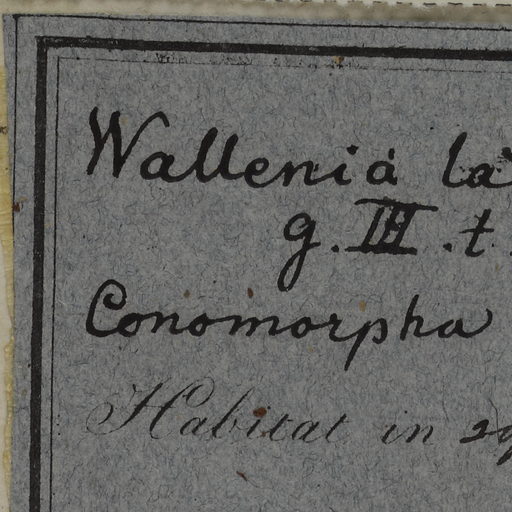 Wallenia la
g. III. t.
Conomorpha
Habitat in